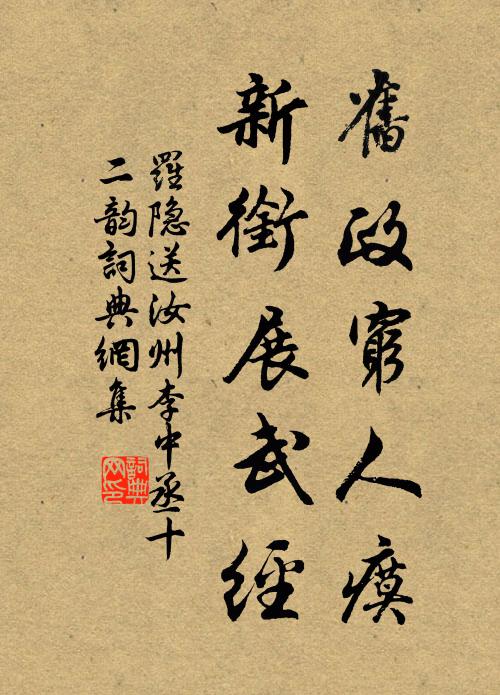 舊政窮人瘼
新銜展武經
羅隐送汝州李中丞十
二韵詞典網集
詞典
网印